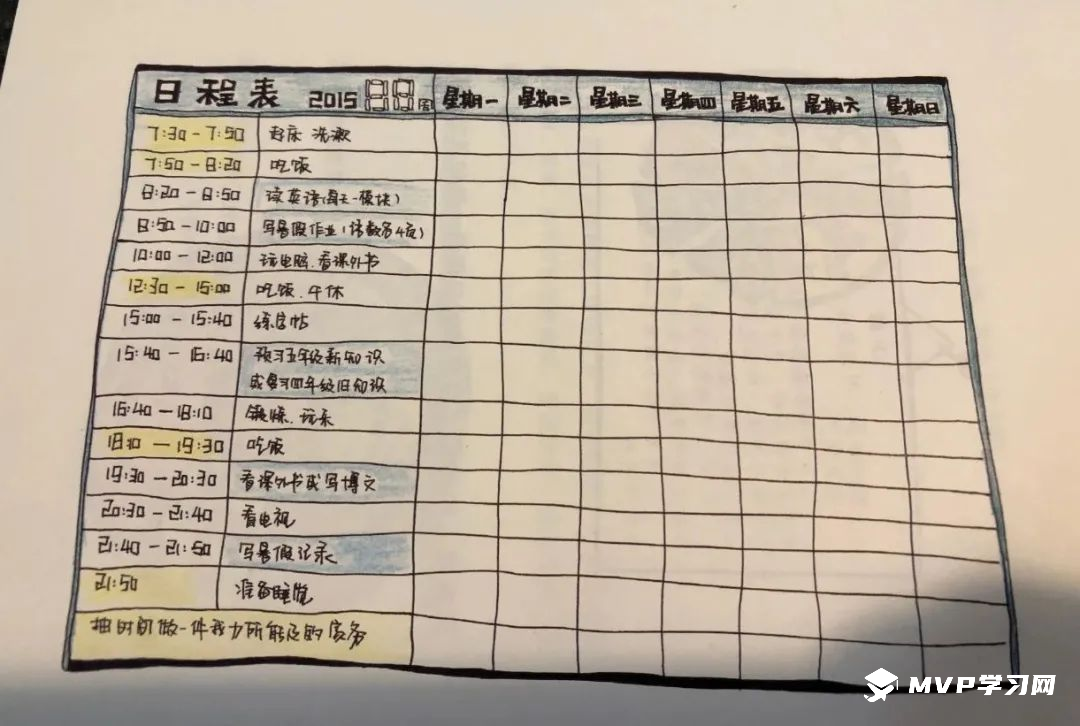 日程表 2015 88周 星期一 星期二 星期三 星期四 星期五 星期六 星期日
7:30-7:50 起床 洗漱
7:50-8:20 吃饭
8:20-8:50 读英语(每天一模块)
8:50-10:00 写暑假作业(语数各4页)
10:00-12:00 玩电脑.看课外书
12:30-15:00 吃饭.午休
15:00-15:40 练字帖
15:40-16:40 预习五年级新知识
或复习四年级旧知识
16:40-18:10 锻炼.玩乐
18:10-19:30 吃饭
19:30-20:30 看课外书或写博文
20:30-21:40 看电视
21:40-21:50 写暑假记录
21:50 准备睡觉
抽时间做一件我力所能及的家务
MVP学习网